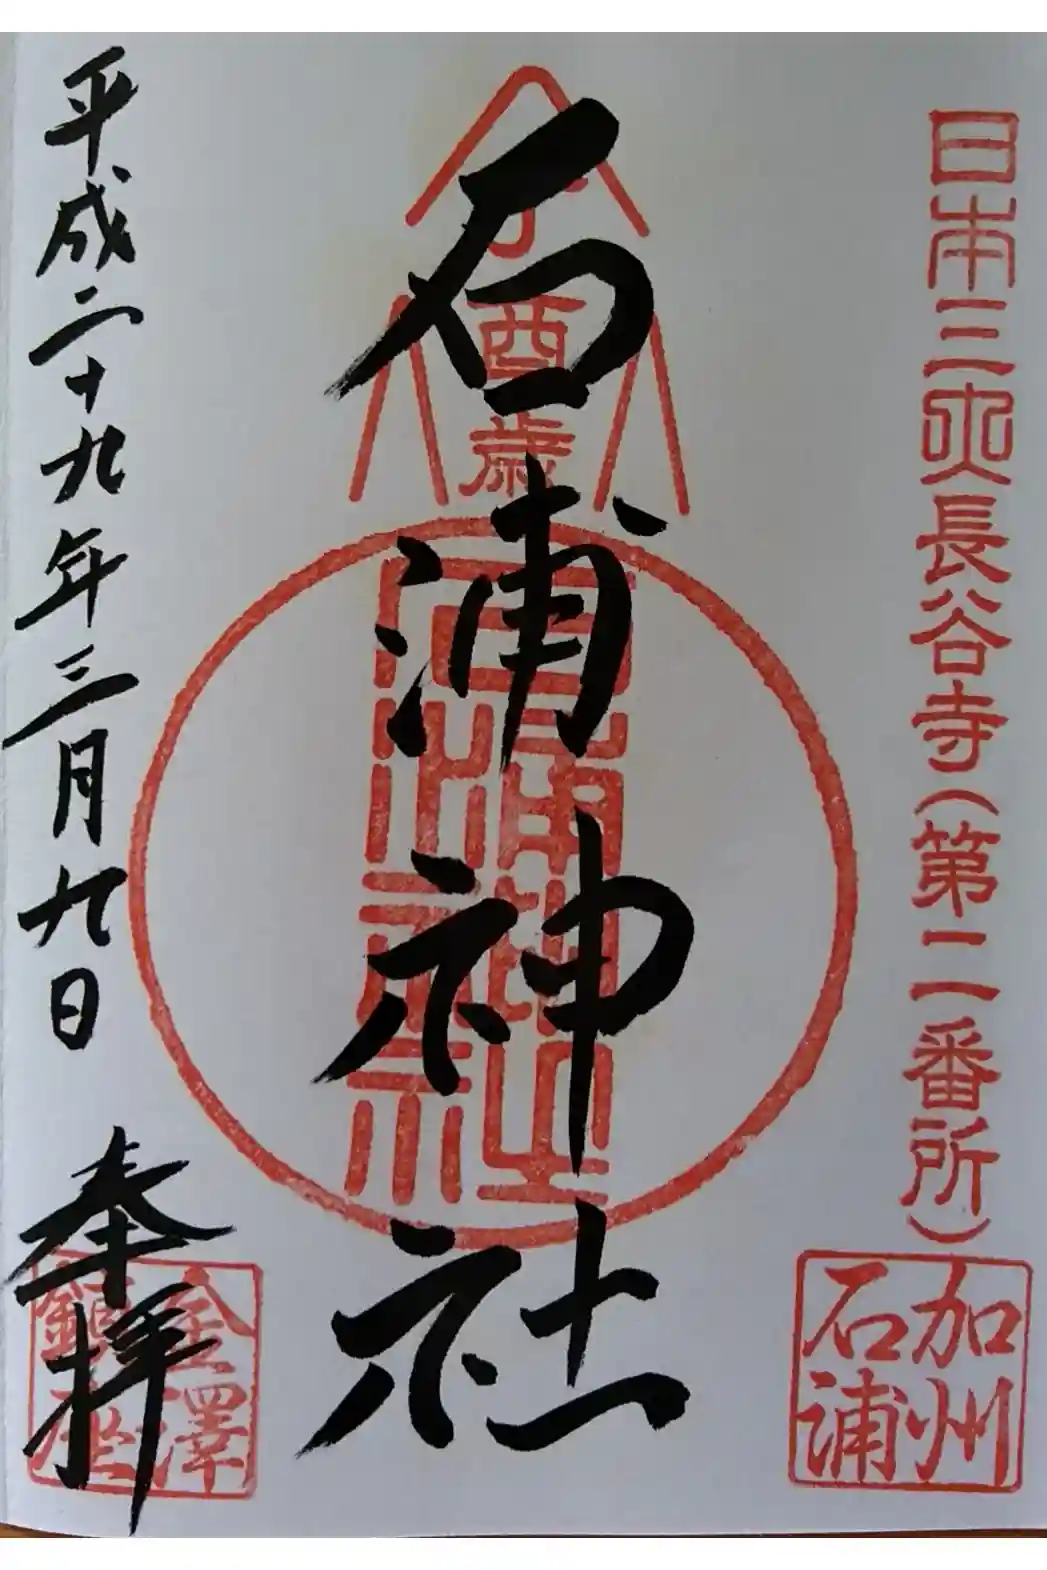 日本三所長谷寺(第二番所)
加州
石浦
丁酉歳
石浦神社
石浦神社
平成二十九年三月九日
奉拝
金澤
鎮座